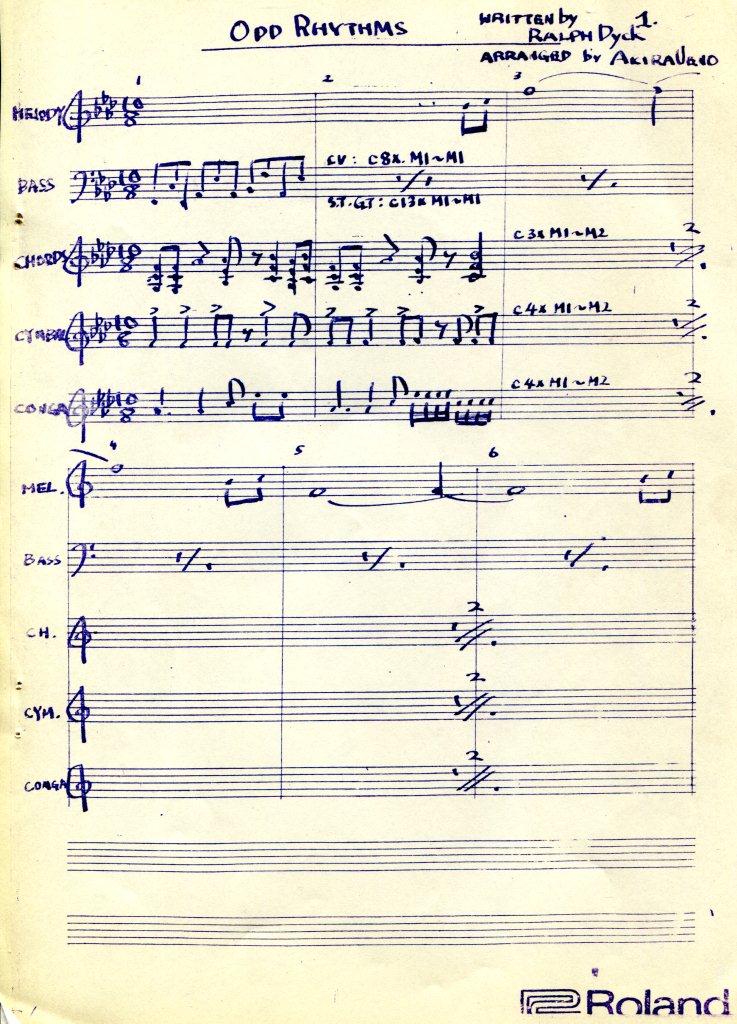 ODD RHYTHMS
WRITTEN by
RALPH Dyck
1.
ARRANGED by AKIRA UENO
1
2
3
MELODY
10
8
BASS
10
8
CV: C8x. M1~M1
ST.GT: C13x M1~M1
CHORDS
10
8
C3x M1~M2
2
CYMBAL
10
C4x M1~M2
2
CONGA
10
8
C4x M1~M2
2
4
5
6
MEL.
BASS
CH.
2
CYM.
2
CONGA
2
Roland